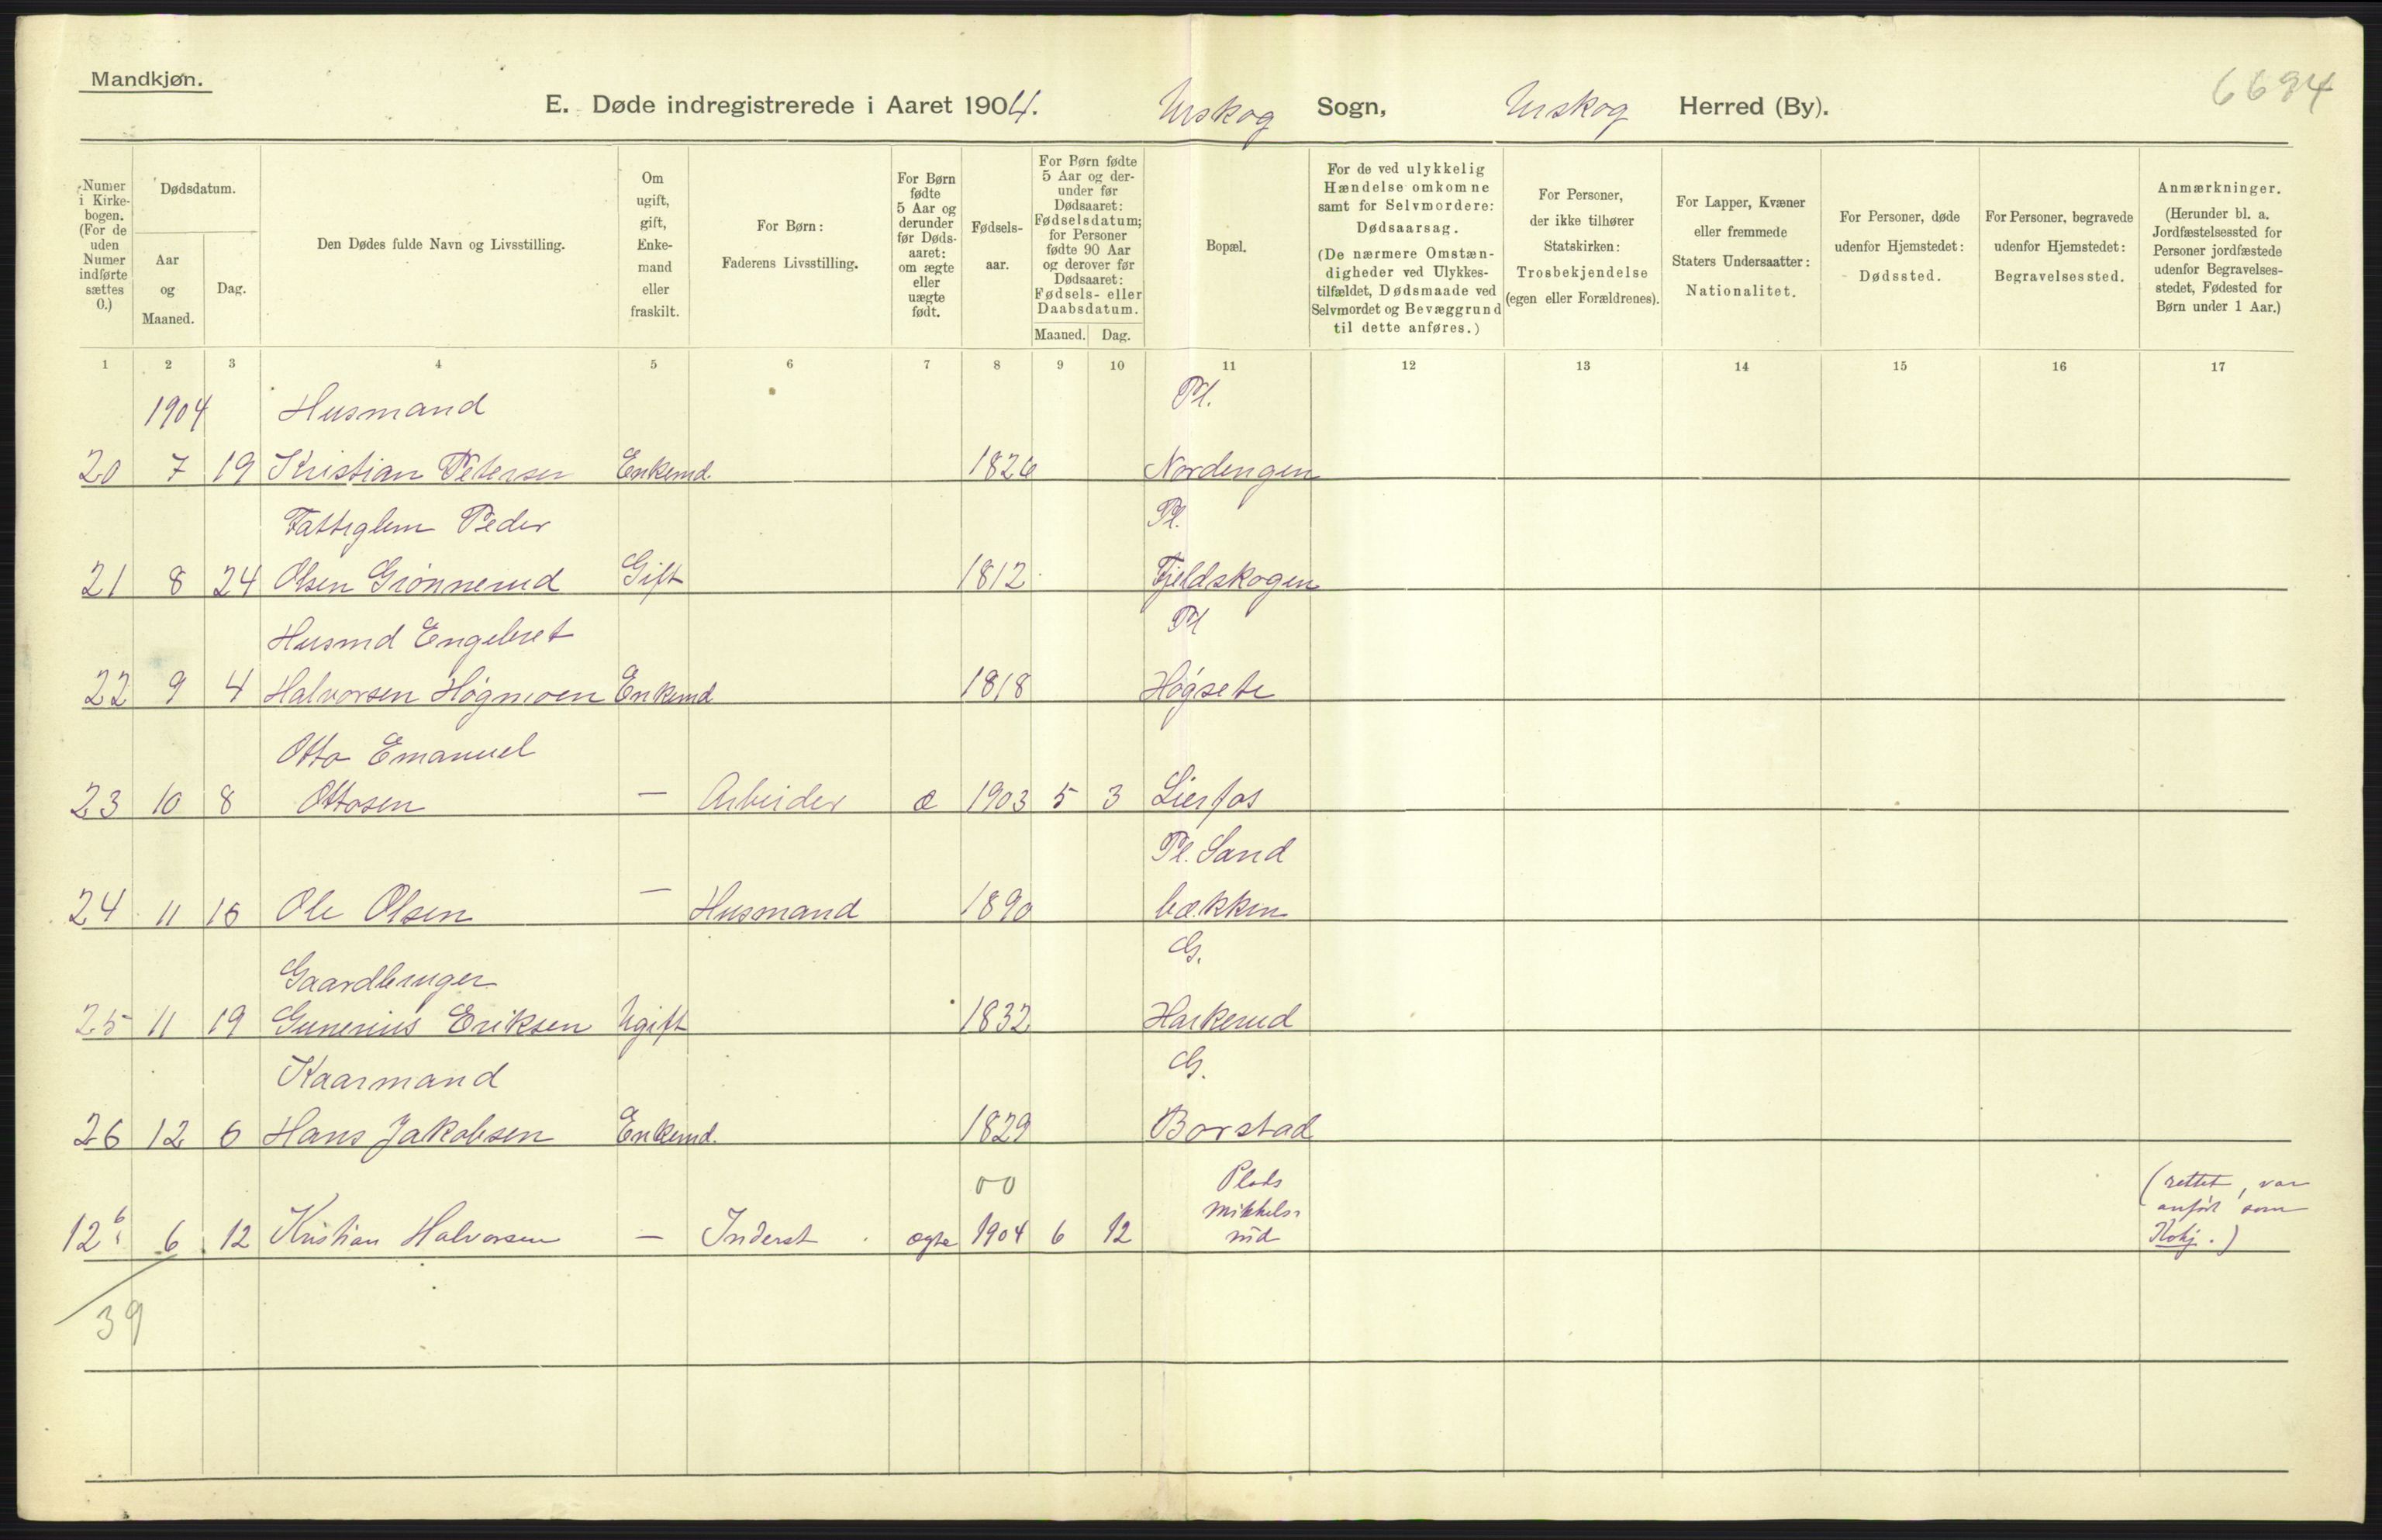 Mandkjøn.
E. Døde indregistrerede i Aaret 1904. Urskog Sogn, Urskog Herred (By).
6694
Numer i Kirkebogen. (For de uden Numer indførte sættes 0.)
Dødsdatum.
Aar og Maaned.
Dag.
Den Dødes fulde Navn og Livsstilling.
Om ugift, gift, Enkemand eller fraskilt.
For Børn: Faderens Livsstilling.
For Børn fødte 5 Aar og derunder før Dødsaaret: om ægte eller uægte født.
Fødselsaar.
For Børn fødte 5 Aar og derunder før Dødsaaret: Fødselsdatum; for Personer fødte 90 Aar og derover før Dødsaaret: Fødsels- eller Daabsdatum.
Maaned. Dag.
Bopæl.
For de ved ulykkelig Hændelse omkomne samt for Selvmordere: Dødsaarsag. (De nærmere Omstændigheder ved Ulykkestilfældet, Dødsmaade ved Selvmordet og Bevæggrund til dette anføres.)
For Personer, der ikke tilhører Statskirken: Trosbekjendelse (egen eller Forældrenes).
For Lapper, Kvæner eller fremmede Staters Undersaatter: Nationalitet.
For Personer, døde udenfor Hjemstedet: Dødssted.
For Personer, begravede udenfor Hjemstedet: Begravelsessted.
Anmærkninger. (Herunder bl. a. Jordfæstelsessted for Personer jordfæstede udenfor Begravelsesstedet, Fødested for Børn under 1 Aar.)
1 2 3 4 5 6 7 8 9 10 11 12 13 14 15 16 17
1904 Husmand Pl.
20 7 19 Kristian Petersen Enkemd. 1826 Nordengen
Fattiglem Peder Pl.
21 8 24 Olsen Grønnerud Gift 1812 Fjeldskogen
Husmd Engebret Pl
22 9 4 Halvorsen Høgmoen Enkemd 1818 Høgsete
Otto Emanuel
23 10 8 Ottosen — Arbeider æ 1903 5 3 Lierfos
Pl. Sand
24 11 16 Ole Olsen — Husmand 1890 bækken
Gaardbruger G.
25 11 19 Gunerius Eriksen Ugift 1832 Harkerud
Kaarmand G.
26 12 6 Hans Jakobsen Enkemd. 1829 Borstad
00 Plads (rettet, var
Mikkels- anført som
12b 6 12 Kristian Halvorsen — Inderst ægte 1904 6 12 rud Kvkj.)
39